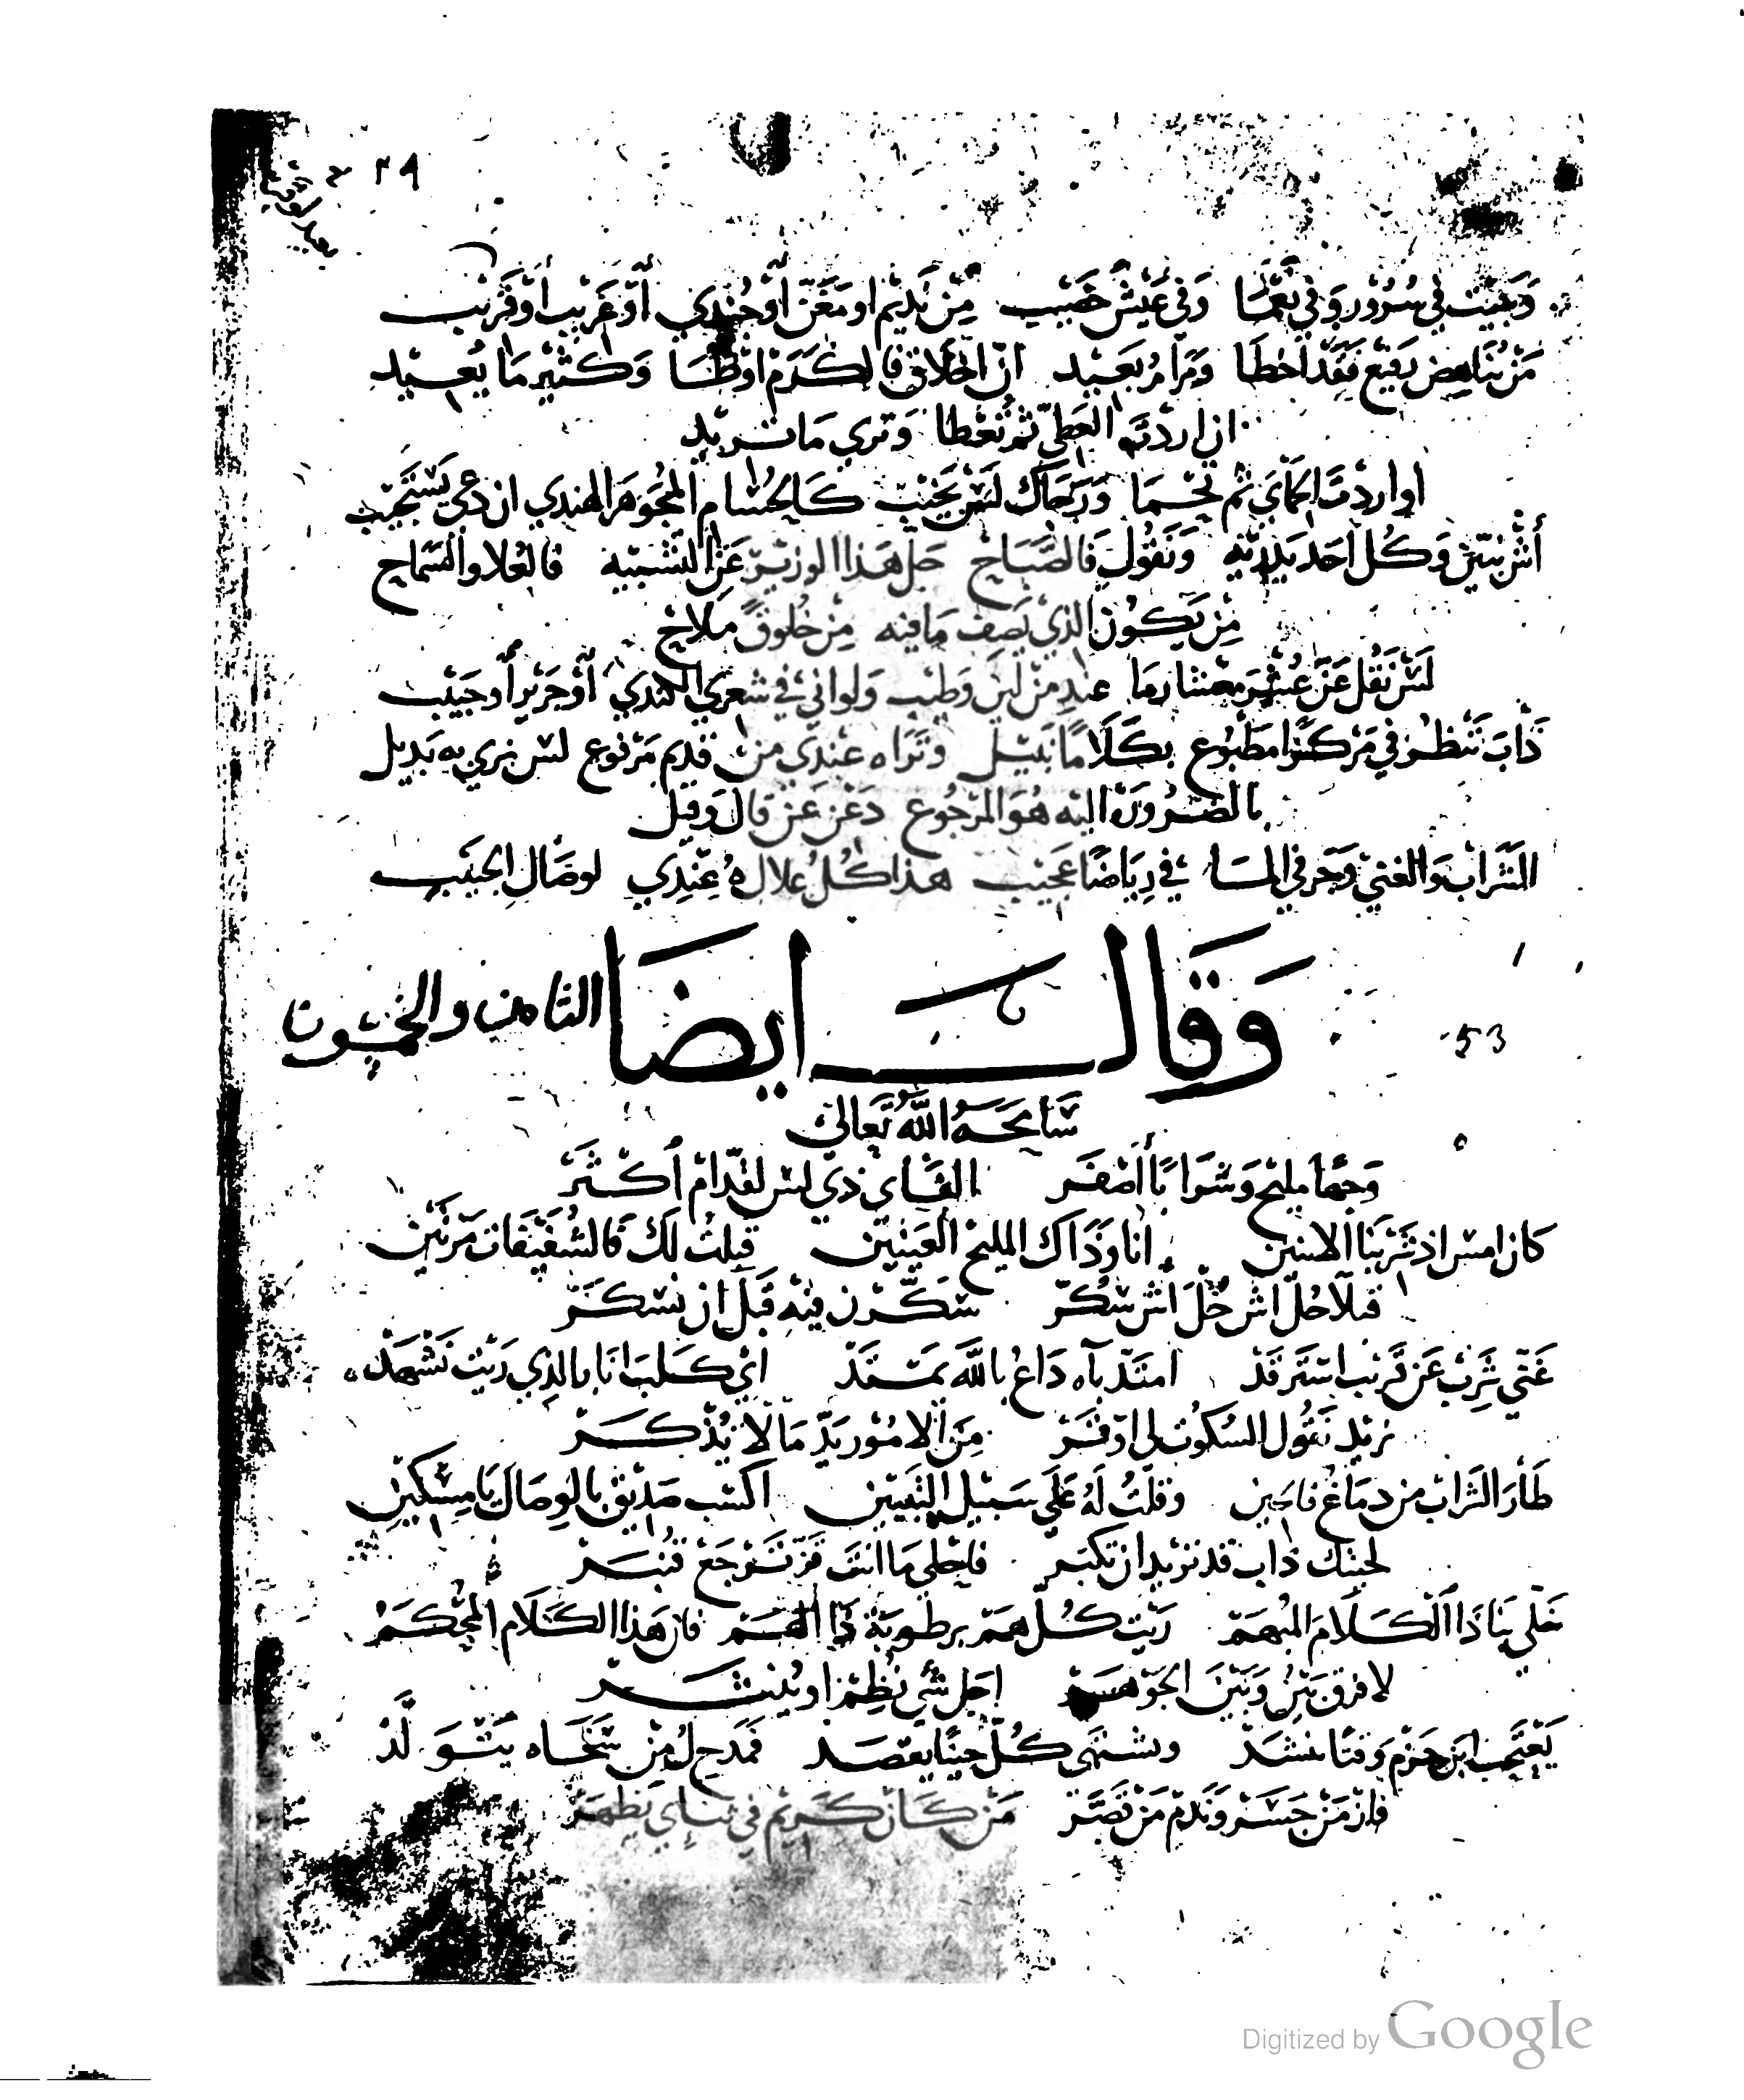 ٢٩
وَجِيت في سُرُوْر وَفي نعْمَا وَفي عَيْش خَصِيب مِنْ نَدِيْم او مَغَنّ أوْ جُندِي أوْ غَرِيب أوْ قَرِيْب
مَنْ يُنَاهِض رَفيع فَقَد اخطَا وَمَرَامُ بَعَيِد انّ اخلاق فالكَرَم اوْطَا وَكثيْر مَا يُعِيْد
ان اردْتَه العَطى ثم تُعْطا وَتري مَا تريْد
او اردْتَ الحمَايَ ثم تحْمَا وَرَجاك لسْ يَخِيْب كَالحُسَام المجَوهَر الهندي ان دعى يَسْتَجَيْب
أشْ نبَيّن وَكُل أحَد يَدريْه وَنقُولْ فالصَّبَاح جَل هَذا الوزيْر عَن التشبيْه فالعُلا والسَّمَاح
مِن يَكُون الذي يَصِف مَا فيه مِنْ خُلوقً مِلاح
لسْ نَقُل عَنْ عُشرْ معْشار مَا عندِ مِنْ لينْ وَطيْب وَلو انيْ في شعري الكندي أوْ جَرْير أو حَبيْب
ذَابَ تَنْظُر في مَركزا مَطبُوع بكَلامًا نَبيْل وَتَرَاه عندي منْ قدِم مَرْفوع لسْ نري به بَديل
بالضرُورَه اليْه هُوَ المرْجُوع دَعْنْ عَنْ قال وَقيْل
الشَّرَابْ وَالغنيْ وَجَر في المسَا في رِيَاضًا عَجيْب هذا كُل عُلالهُ عِنْدِي لوصَال الحبيَب
وَقالَ ايضَا الثامن والخمسون
53
سَامحَهُ اللهُ تَعَالى
وَجهًا مليح وَشرَابًا أصْفَر القَاي ذي لسْ لقدّام أكثَرْ
كان امس اذ شرْبنَا الاثنين انا وَذَاك المليح العَينيْن قبلتُ لك فالشُفَيّفَات مَرّتَيْن
قبلا حُلّ اش حُلّ اش سُكّر سَكّرْن فيْه قَبل ان نسْكَرْ
غَنّي شَرِب عَن قريْب استَرقَدْ امتَدّ بآه دَاعُ بالله يمتَدّ اي كَلب انَا بالذِي رَيْت نَشْهَدْ
نريْد نَقُول السُكوُت لي اوْقَر مِنَ الامُوْر يَدّ مَا لا يُذْكَرْ
طَارَ الشرَاب من دمَاغ فاحيْن وقلتُ لَهُ عَلَى سَبيْل التَبيين اكسَب صَديْق بالوِصَال يَا مِسْكين
لحيتك ذاب قد تريْد ان تكبَر فاحْظي مَا انتَ مَرّ تَرْجَعْ قنبَرْ
خَلي يَنا ذَا الكَلامَ المُبهَمّ رَيْت كُلّ هَمّ برطوبَة ذا الهَمّ فان هَذا الكَلام المحْكَمْ
لا فرق بَيْن وَبَيْنَ الجَوْهَرْ اجَل شَيْ نُظِمْ او يُنثَرْ
يَعْجبْ ابن حَزم وَقتًا ننشَدْ ونشتهي كُلّ حينًا يقصَد فمَدحِ لُ مِنْ سَخَاه يَتْوَلّدْ
فان مَنْ جَسَرْ وَنَدمْ مَنْ قَصَّرْ مَنْ كَانْ كَريْم في ثنَاي يَظْهَرْ
Digitized by Google